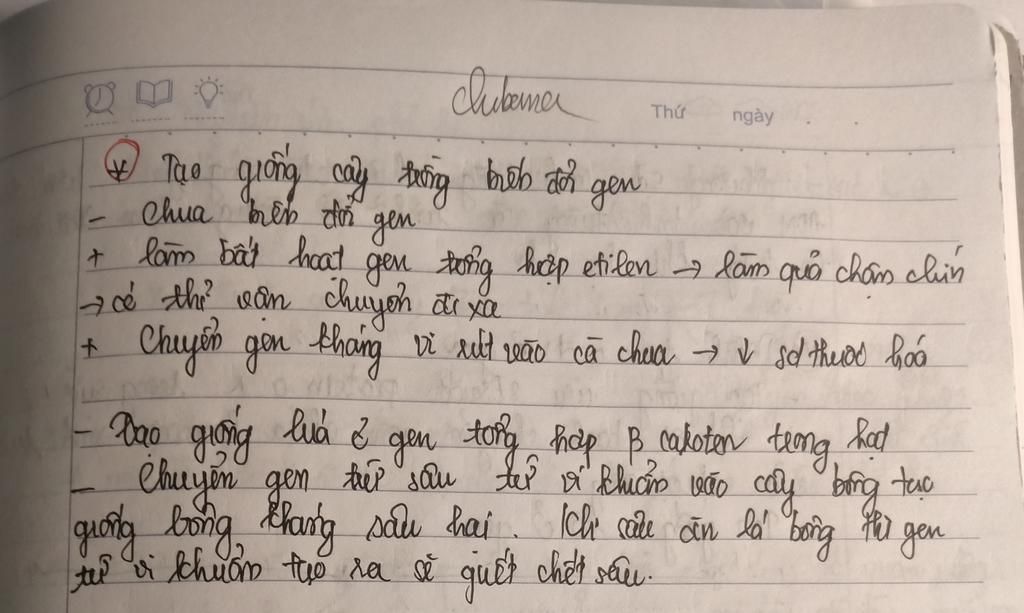 Clubema
Thứ ngày
* Tạo giống cây trồng biến đổi gen
- Chua biến đổi gen
+ làm bất hoạt gen tổng hợp etilen → làm quả chậm chín
→ có thể vân chuyển đi xa
+ Chuyển gen kháng vi rút vào cà chua → ↓ sd thuoc hoá
- Tạo giống lúa có gen tổng hợp β caroten trong hạt
- Chuyển gen trừ sâu từ vi khuẩn vào cây bông tạo
giống bông kháng sâu hại. Khi sâu ăn lá bông thì gen
từ vi khuẩn tạo ra sẽ giết chết sâu.